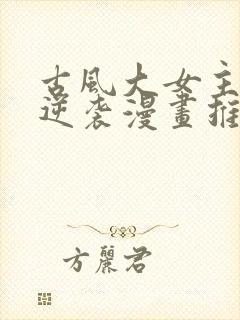 古風大女主
逆袭漫畫推
方麗君